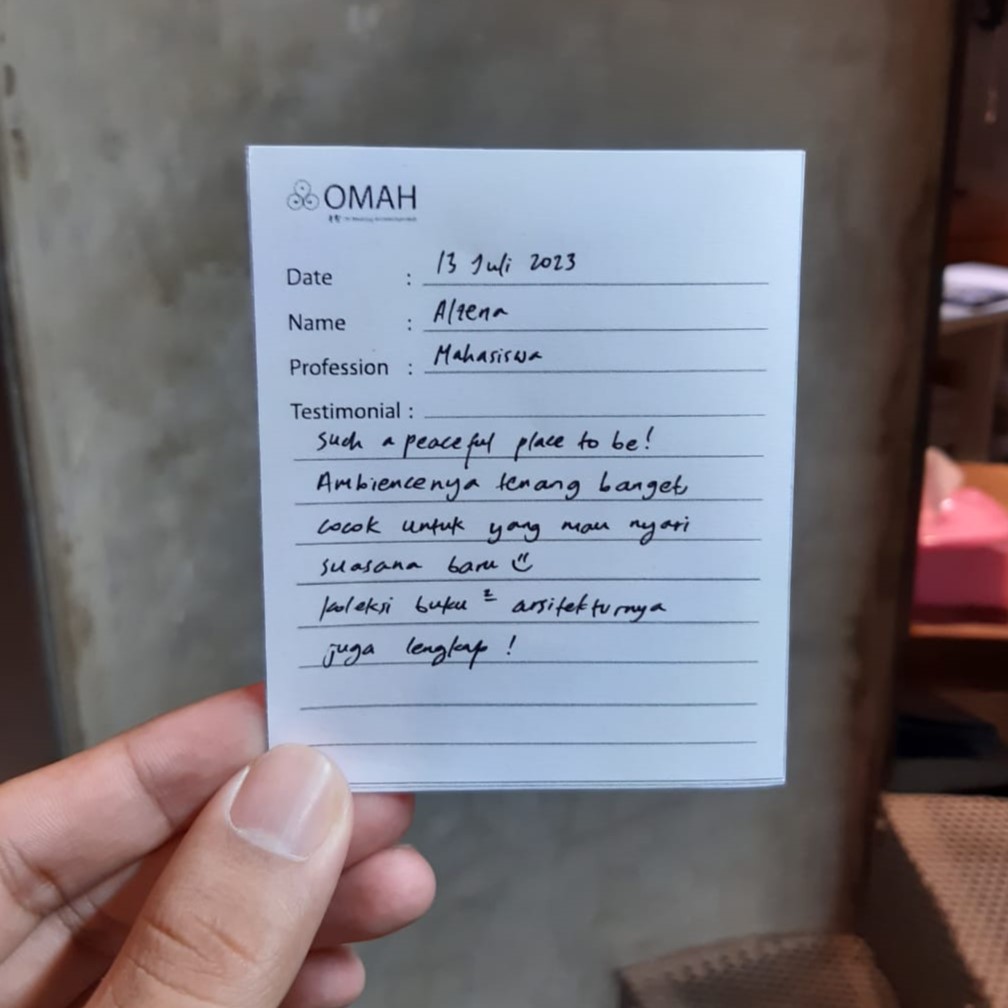 OMAH
Date : 13 Juli 2023
Name :
Profession : Mahasiswa
Testimonial :
Such a peaceful place to be!
Ambiencenya tenang banget
cocok untuk yang mau nyari
suasana baru
koleksi buku ² arsitekturnya
juga lengkap !